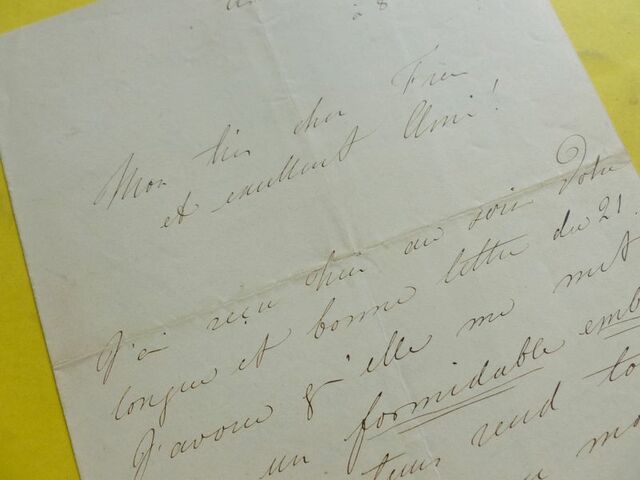 à 8
Mon très cher Frère
et excellent Ami!
J'ai reçu hier au soir Votre
longue et bonne lettre du 21.
J'avoue qu'elle me met
un formidable emb
rend to